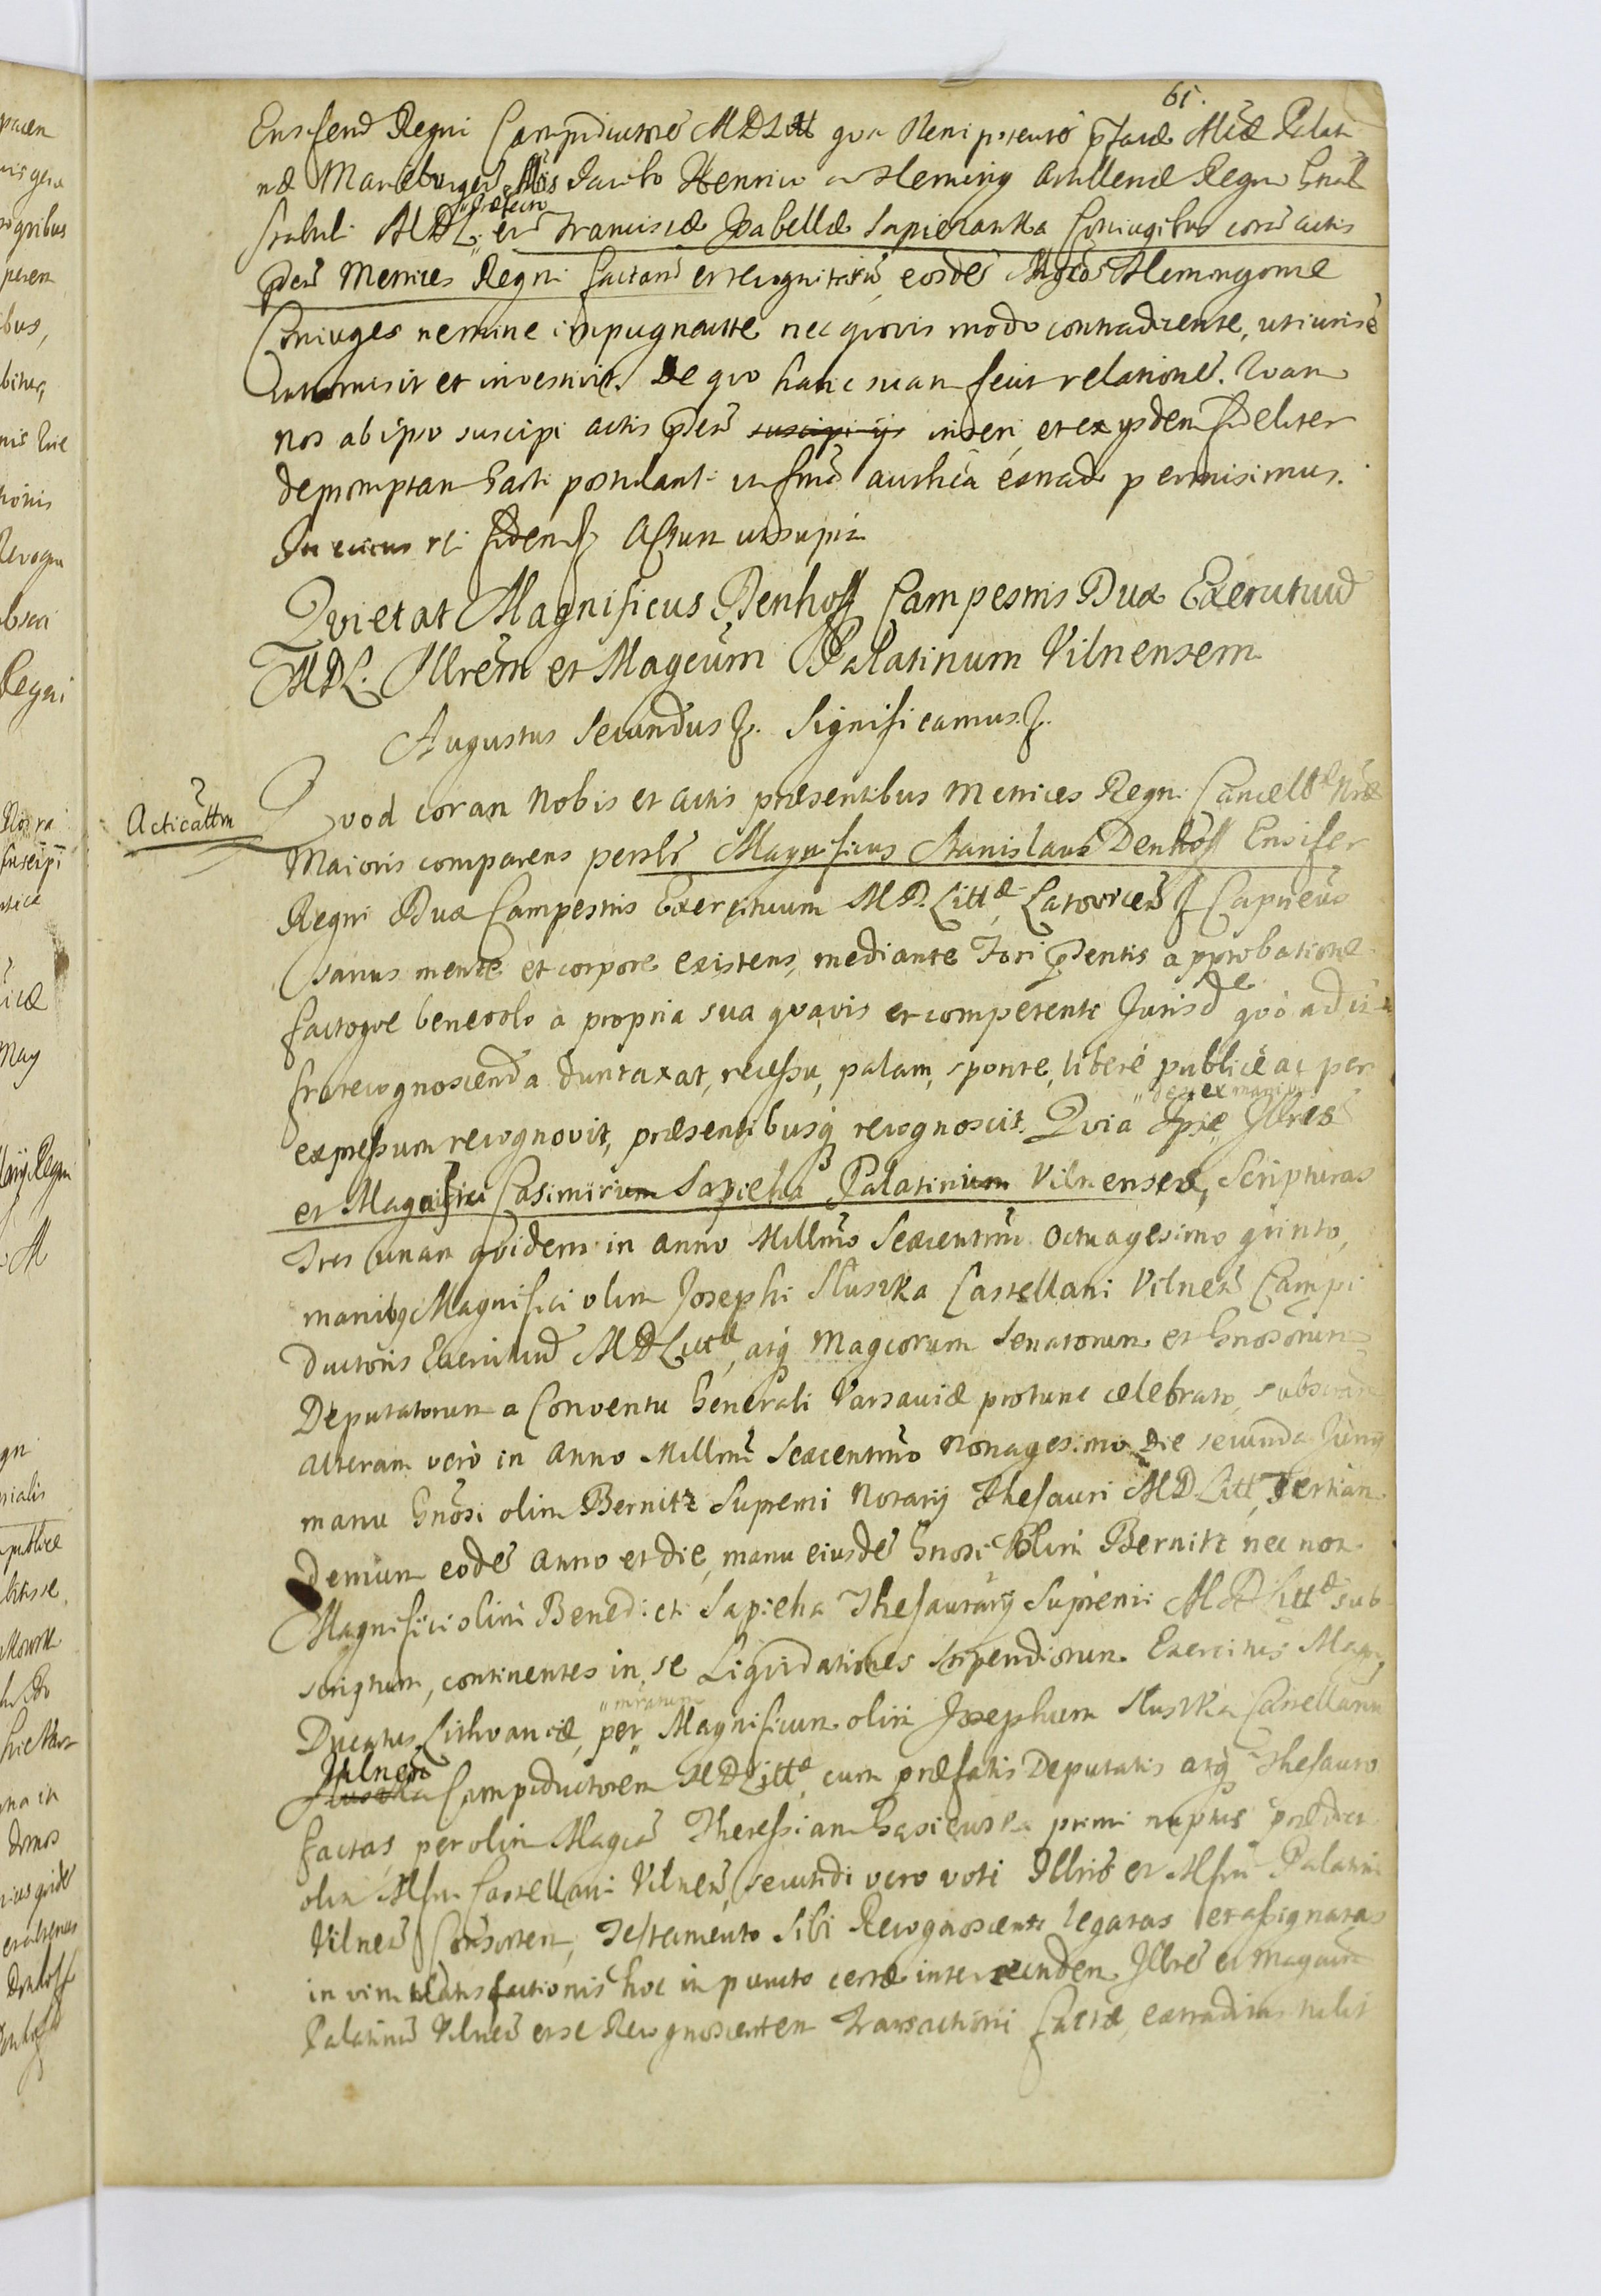 61.
Ensiferū Regni Campiductorē MDLitt qua Plenipotentē pfatæ Mcæ Palati
næ Marieburgeñ Mcis Jacobo Henrico a Fleming Artilleriæ Regni Gnãli
præfecto
stabuli MDL. et Franciscæ Isabellæ Sapiezanka Coniugibus corā actis
pñtib Metrices Regni factam et recognitam, eosdē Mgcos Flemingowe
Coniuges nemine impugnante nec quovis modo contradicente, uti iuris ē
intromisit et investivit. De quo hanc suam fecit relationē. Quam
nos ab ipso suscipi actis pñtib suscipi ijs inseri, et ex ijsdem fideliter
depromptam Parti postulanti in formā authēa extradi permisimus.
In cuius rei fidem Actum ut supra
Quietat Magnificus Denhoff Campestris Dux Exercituū
MDL. Illrem et Magcum Palatinum Vilnensem
Augustus Secundus. Significamus.
Acticattm
Quod coram Nobis et actis præsentibus Metrices Regni Cancellæ Nræ
Maioris comparens persltr Magnificus Stanislaus Denhoff Ensifer
Regni Dux Campestris Exercituum M.D. Littæ Latovicen Capneus
sanus mente et corpore existens, mediante Fori pñtis approbatione
factoque benevolo a propria sua quavis et competenti Jurisdne quò ad in
fra recognoscenda duntaxat, recessu, palam, sponte, liberè publicè ac per
expressum recognovit, præsentibusq recognoscit. Quia Ipse Illres
et Magnifici Casimirum Sapieha Palatinum Vilnense, Scripturas
Tres unam quidem in anno Millmo Sexcentmo Octuagesimo quinto,
manibq Magnifici olim Josephi Sluszka Castellani Vilneñ Campi
ductoris Exercituū MDLittæ, atq Magcorum Senatorum et Gnosorum
Deputatorum a Conventu Generali Varsaviæ protunc celebrato, subscriptam
alteram verò in Anno Millmo Sexcentmo Nonagesimo Die secunda Junij
manu Gnosi olim Bernitz Supremi Notarij Thesauri MD Litt, Tertiam
demum eodē anno et die, manu eiusdē Gnosi olim Bernitz nec non
Magnifici olim Benedicti Sapieha Thesaurarij Supremi MD Littæ sub
scriptum, continentes in se Liquidationes Stipendiorum Exercitus Magni
Ducatus Lithvaniæ, per Magnificum olim Josephum Sluszka Castellanum
Vilneñ
Sluszka Campiductorem MDLittæ, cum præfatis Deputatis atq Thesauro
factas, per olim Magcā Theressiam Gąsiewska primi nuptus prædicti
olim Mfci Castellani Vilneñ, secundi vero voti Illris et Mfci Palatini
Vilneñ Consortem, Testamento Sibi Recognoscenti legatas et assignatas
in vim satisfactionis hoc in puncto certæ inter eundem Illrē et Magcum
Palatinū Vilneñ et se Recognoscentem Transactioni factæ, extraditas